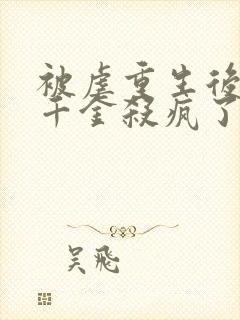 被虐重生後
千金殺瘋了
吴飛